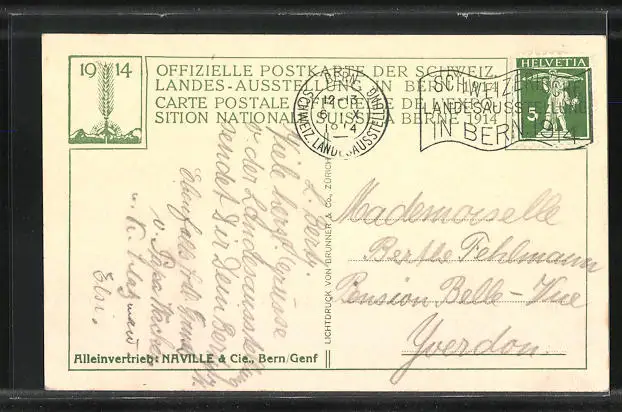 19 14
OFFIZIELLE POSTKARTE DER SCHWEIZ.
LANDES-AUSSTELLUNG IN BERN 1914
CARTE POSTALE OFFICIELLE DE L'EXPO-
SITION NATIONALE SUISSE À BERNE 1914
BERN
SCHWEIZ. LANDESAUSSTELLUNG
SCHWEIZERISCHE
LANDESAUSSTELLUNG
IN BERN 1914
HELVETIA
5
L. Berth.
Viele herzl. Grüsse
v. der Landesausstellung
sendet Dir Dein
Ebenfalls
v. Papa
Elsi.
LICHTDRUCK VON BRUNNER & Co., ZÜRICH
Mademoiselle
Berthe Fehlmann
Pension Belle-Vue
Yverdon.
Alleinvertrieb: NAVILLE & Cie., Bern/Genf